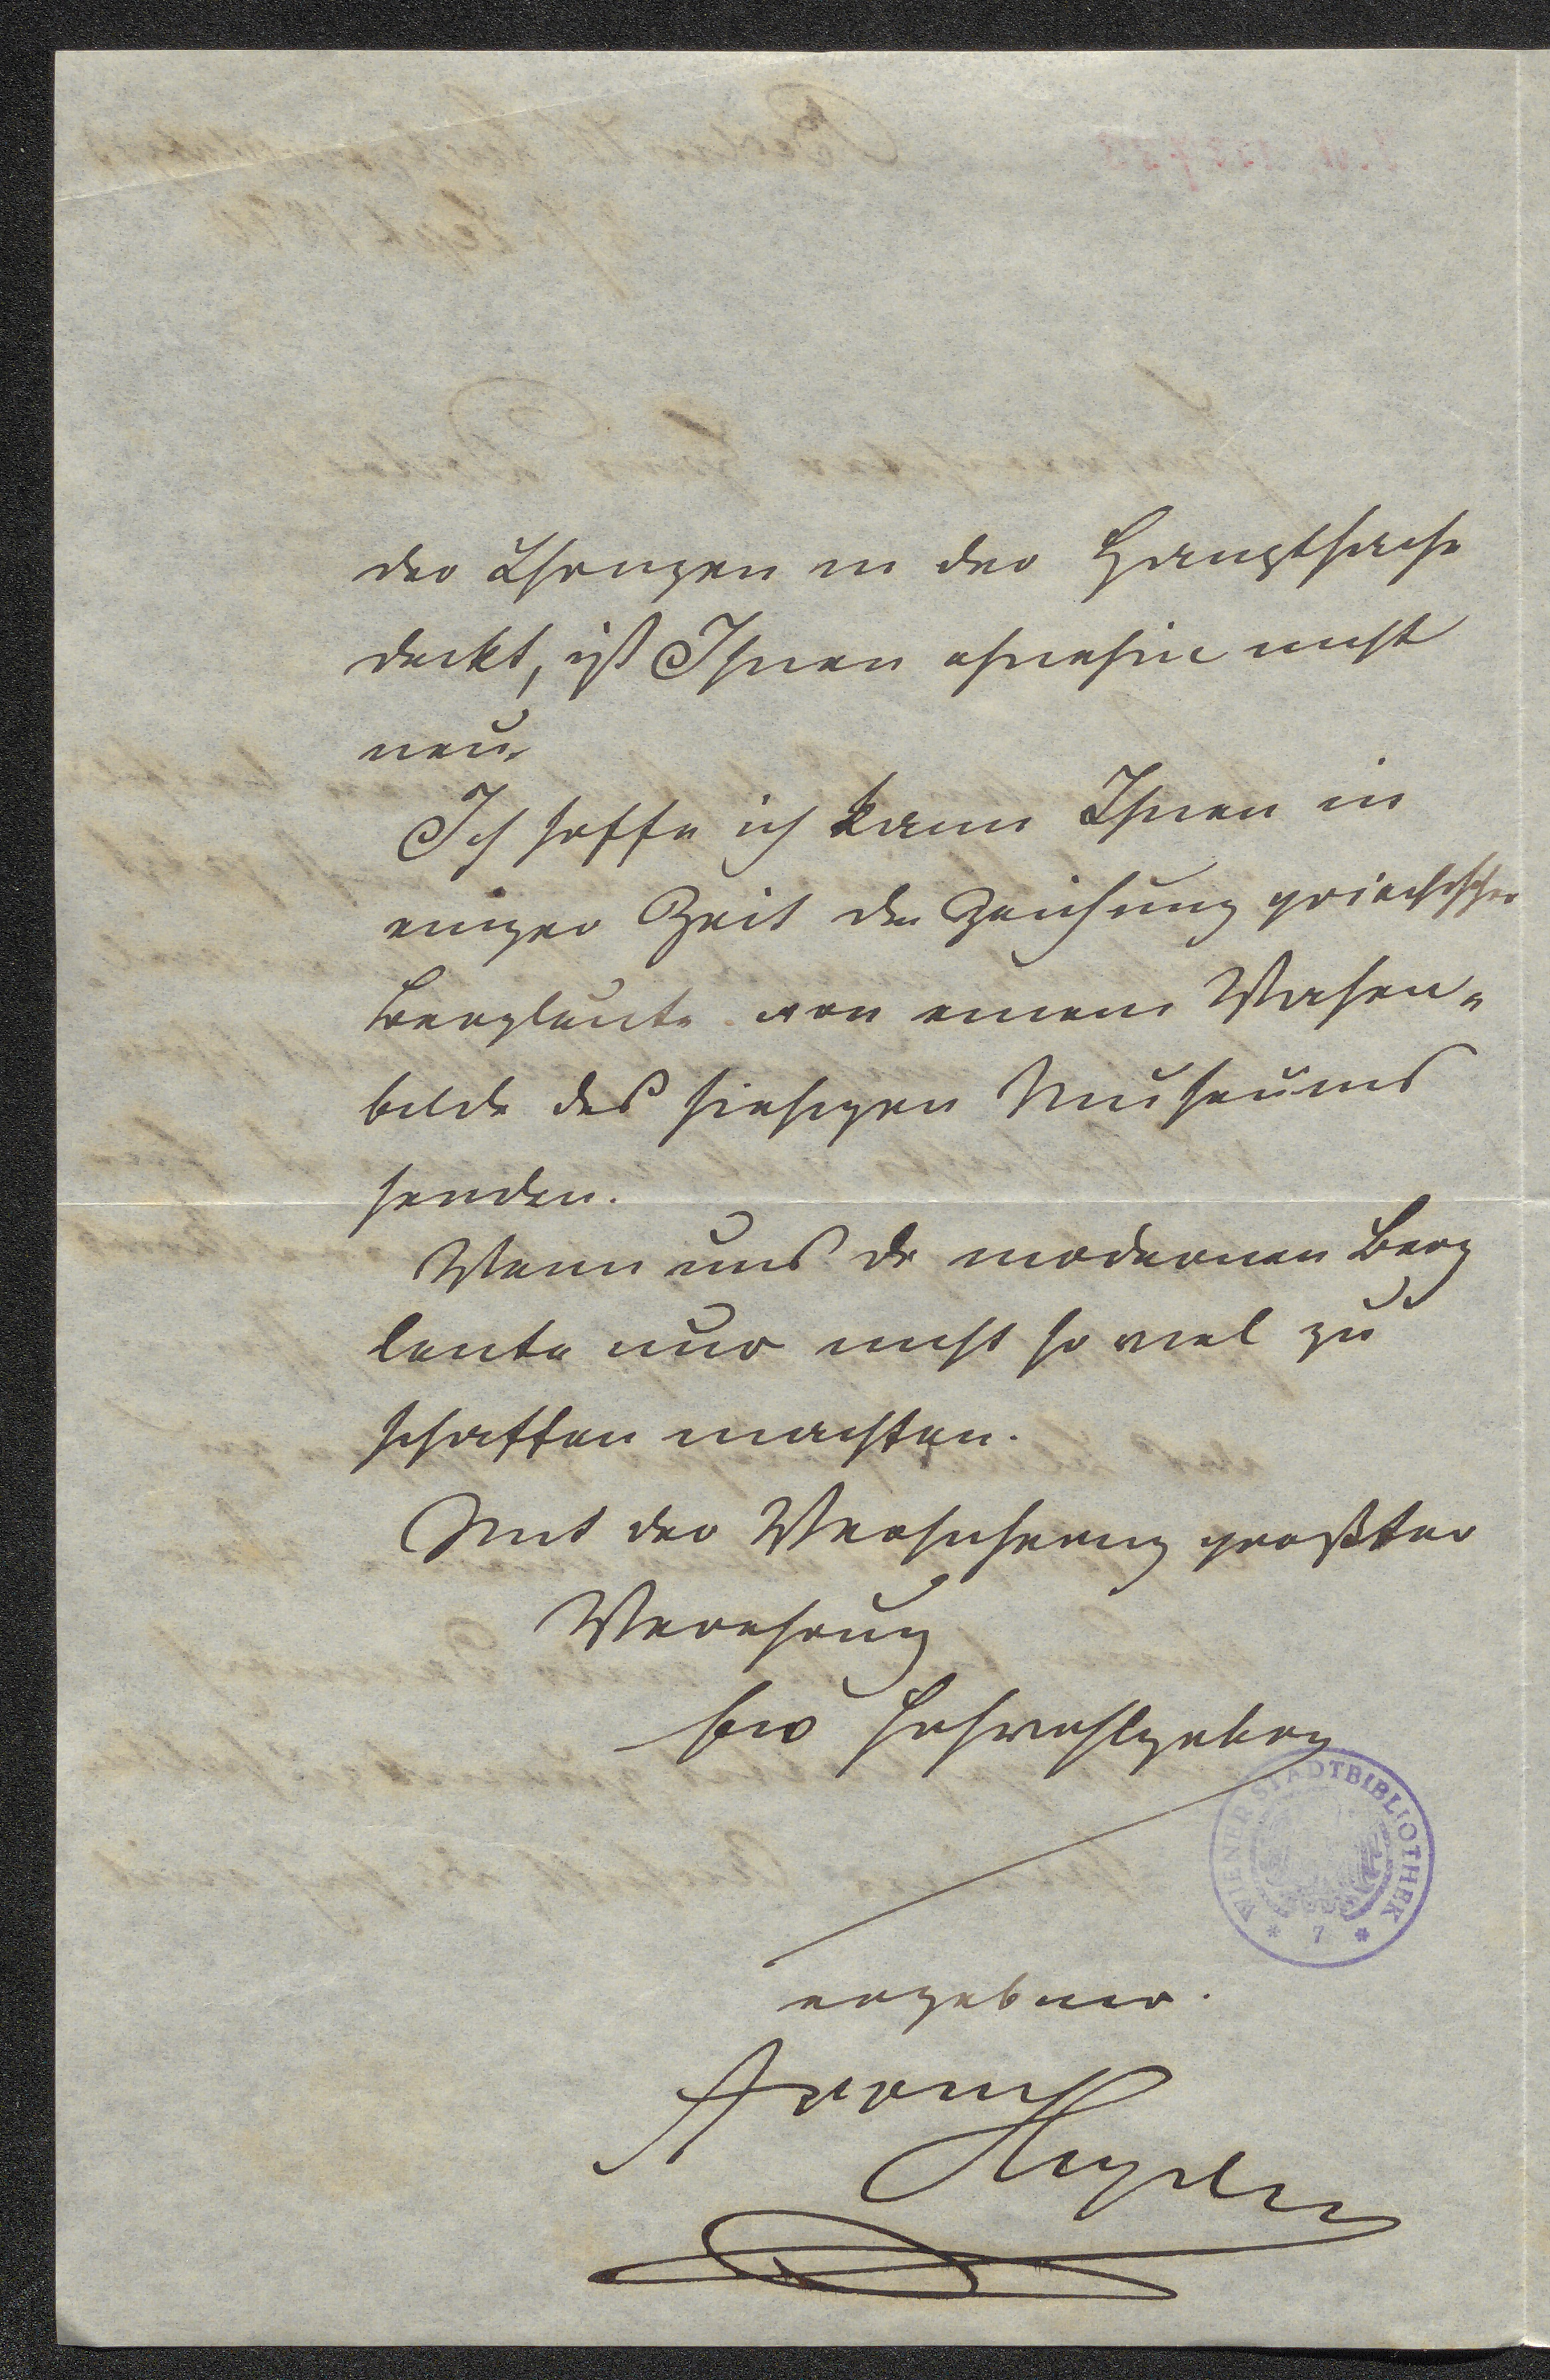 der Ihrigen in der Hauptsache
deckt, ist Ihnen ohnehin nicht
neu.
Ich hoffe ich kann Ihnen in
einiger Zeit die Zeichnung griechischer
Bergleute von einem Vasen-
bilde des hiesigen Museums
senden.
Wenn uns die modernen Berg
leute nur nicht so viel zu
schaffen machten.
Mit der Versicherung größter
Verehrung
Euer Hochwohlgeboren
ergebener
Heyden
WIENER STADTBIBLIOTHEK
* 7 *